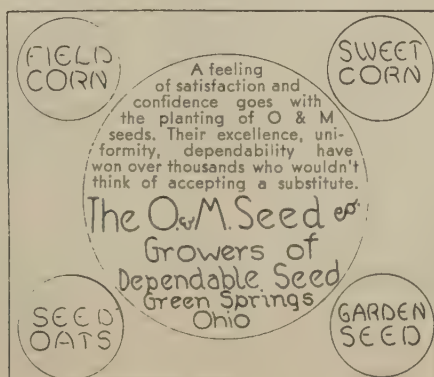 FIELD
CORN
SWEET
CORN
A feeling
of satisfaction and
confidence goes with
the planting of O & M
seeds. Their excellence, uni-
formity, dependability have
won over thousands who wouldn't
think of accepting a substitute.
The O.&M. Seed
Growers of
Dependable Seed
Green Springs
Ohio
SEED
OATS
GARDEN
SEED